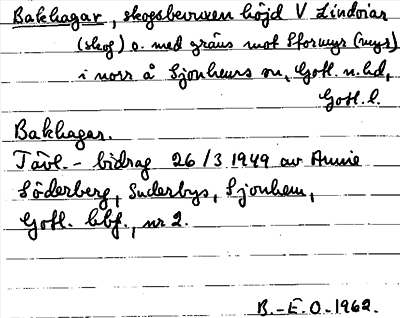 Bakhagar, skogsbevuxen höjd V Lindoiar
(skog) o. med gräns mot Stormyr (myr),
i norr å Sjonhems sn, Gotl. n. hd,
Gotl. l.
Bakhagar.
Tävl. - bidrag 26/3 1949 av Annie
Söderberg, Suderbys, Sjonhem,
Gotl. hbf., nr 2.
B.-E. O. 1962.